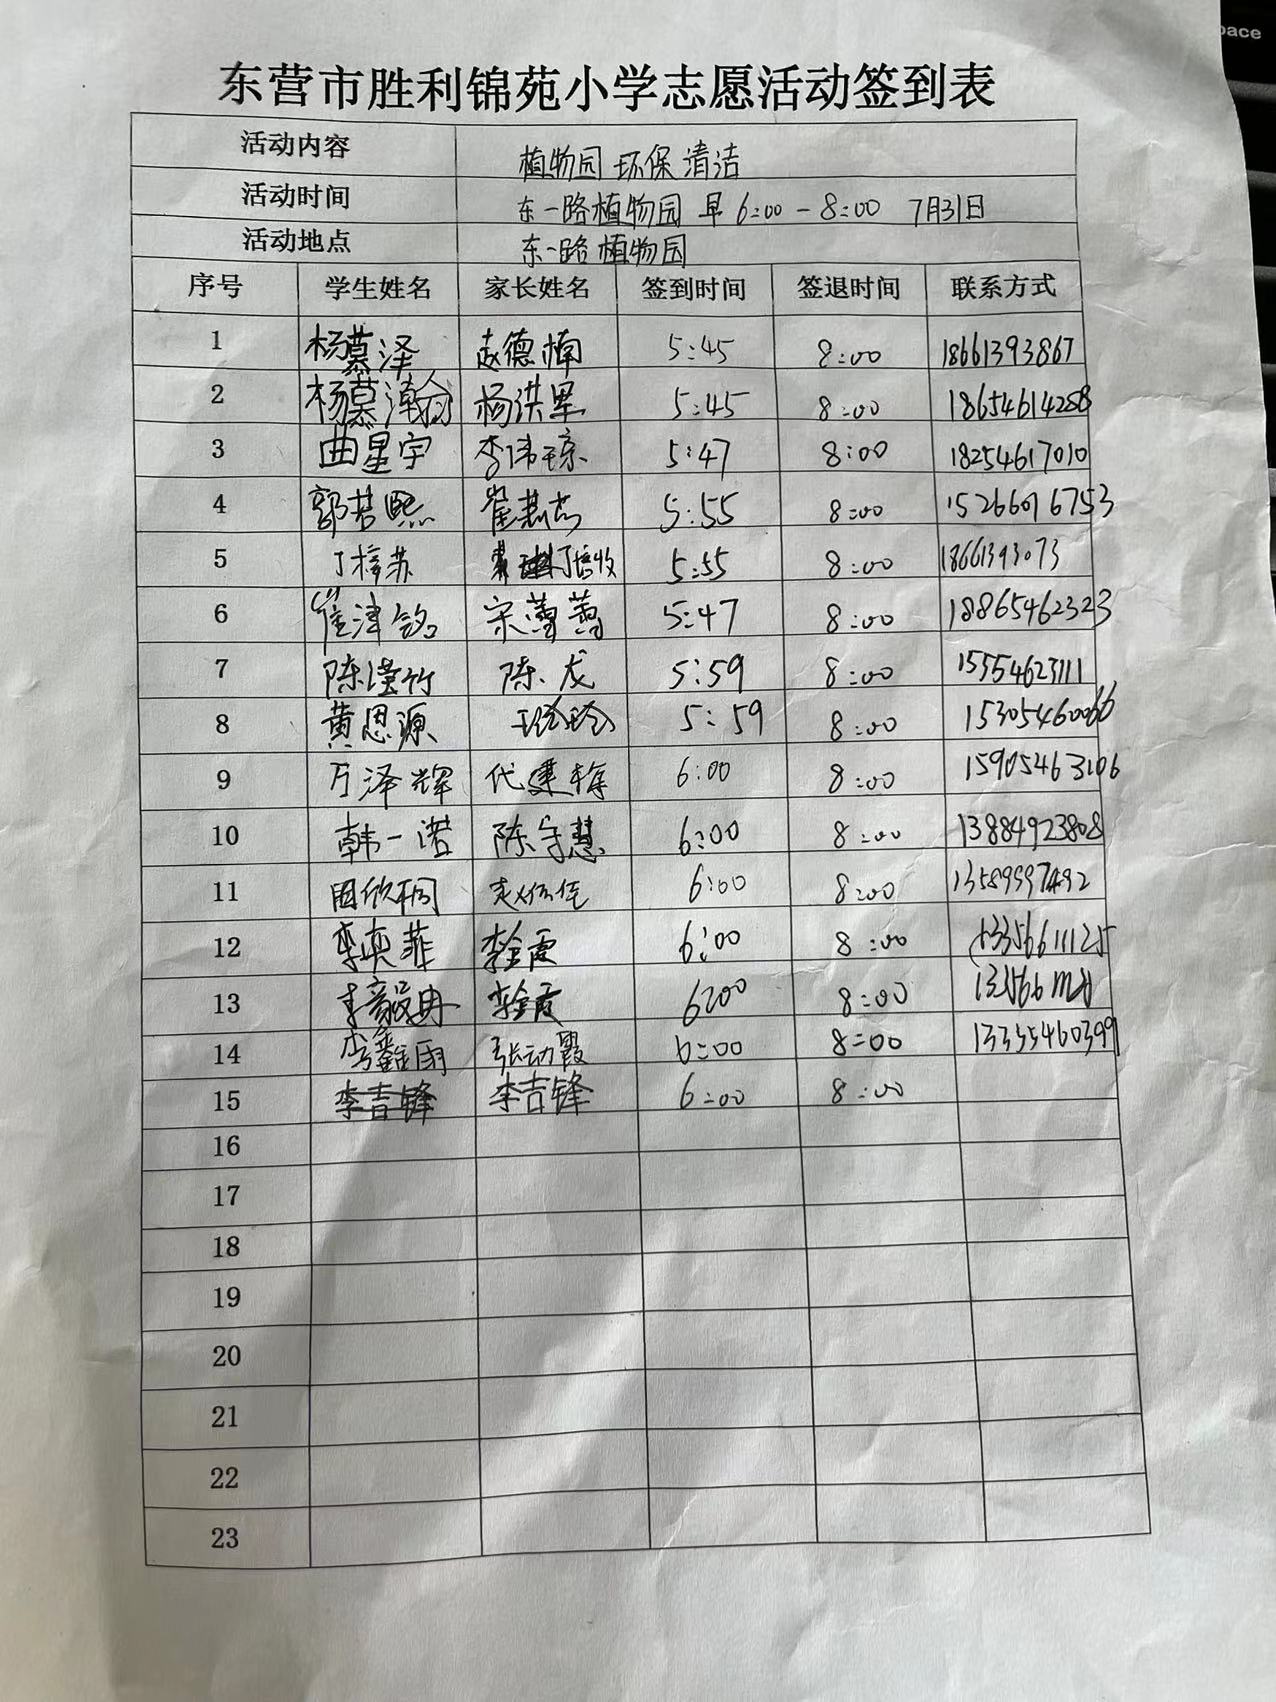 pace
东营市胜利锦苑小学志愿活动签到表
活动内容 植物园 环保清洁
活动时间 东一路植物园 早 6:00-8:00 7月31日
活动地点 东一路植物园
序号 学生姓名 家长姓名 签到时间 签退时间 联系方式
1 杨慕泽 赵德楠 5:45 8:00 18661393867
2 杨慕瀚 杨洪军 5:45 8:00 18654614258
3 曲星宇 李伟琼 5:47 8:00 18254617010
4 郭若熙 5:55 8:00 15266016753
5 丁梓苏 丁培收 5:55 8:00 18661393073
6 崔津铭 宋蕾蕾 5:47 8:00 18865462323
7 陈滢竹 陈龙 5:59 8:00 15554623111
8 黄思源 王玲玲 5:59 8:00 15305460066
9 万泽辉 代建梅 6:00 8:00 15905463106
10 韩一诺 陈守慧 6:00 8:00 13884923808
11 周欣桐 6:00 8:00 13589997492
12 李奕菲 李金霞 6:00 8:00 13356611125
13 李毅冉 李金霞 6:00 8:00
14 李鑫雨 张动霞 6:00 8:00 13355460399
15 李吉锋 李吉锋 6:00 8:00
16
17
18
19
20
21
22
23